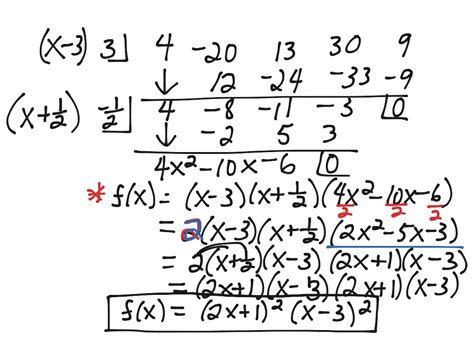 (x-3) 3⌋ 4 -20 13 30 9
↓ 12 -24 -33 -9
(x+1/2) -1/2⌋ 4 -8 -11 -3 |0
↓ -2 5 3
4x²-10x-6 |0
* f(x) = (x-3)(x+1/2)(4x²/2-10x/2-6/2)
= 2(x-3)(x+1/2)(2x²-5x-3)
= 2(x+1/2)(x-3)(2x+1)(x-3)
= (2x+1)(x-3)(2x+1)(x-3)
f(x) = (2x+1)²(x-3)²